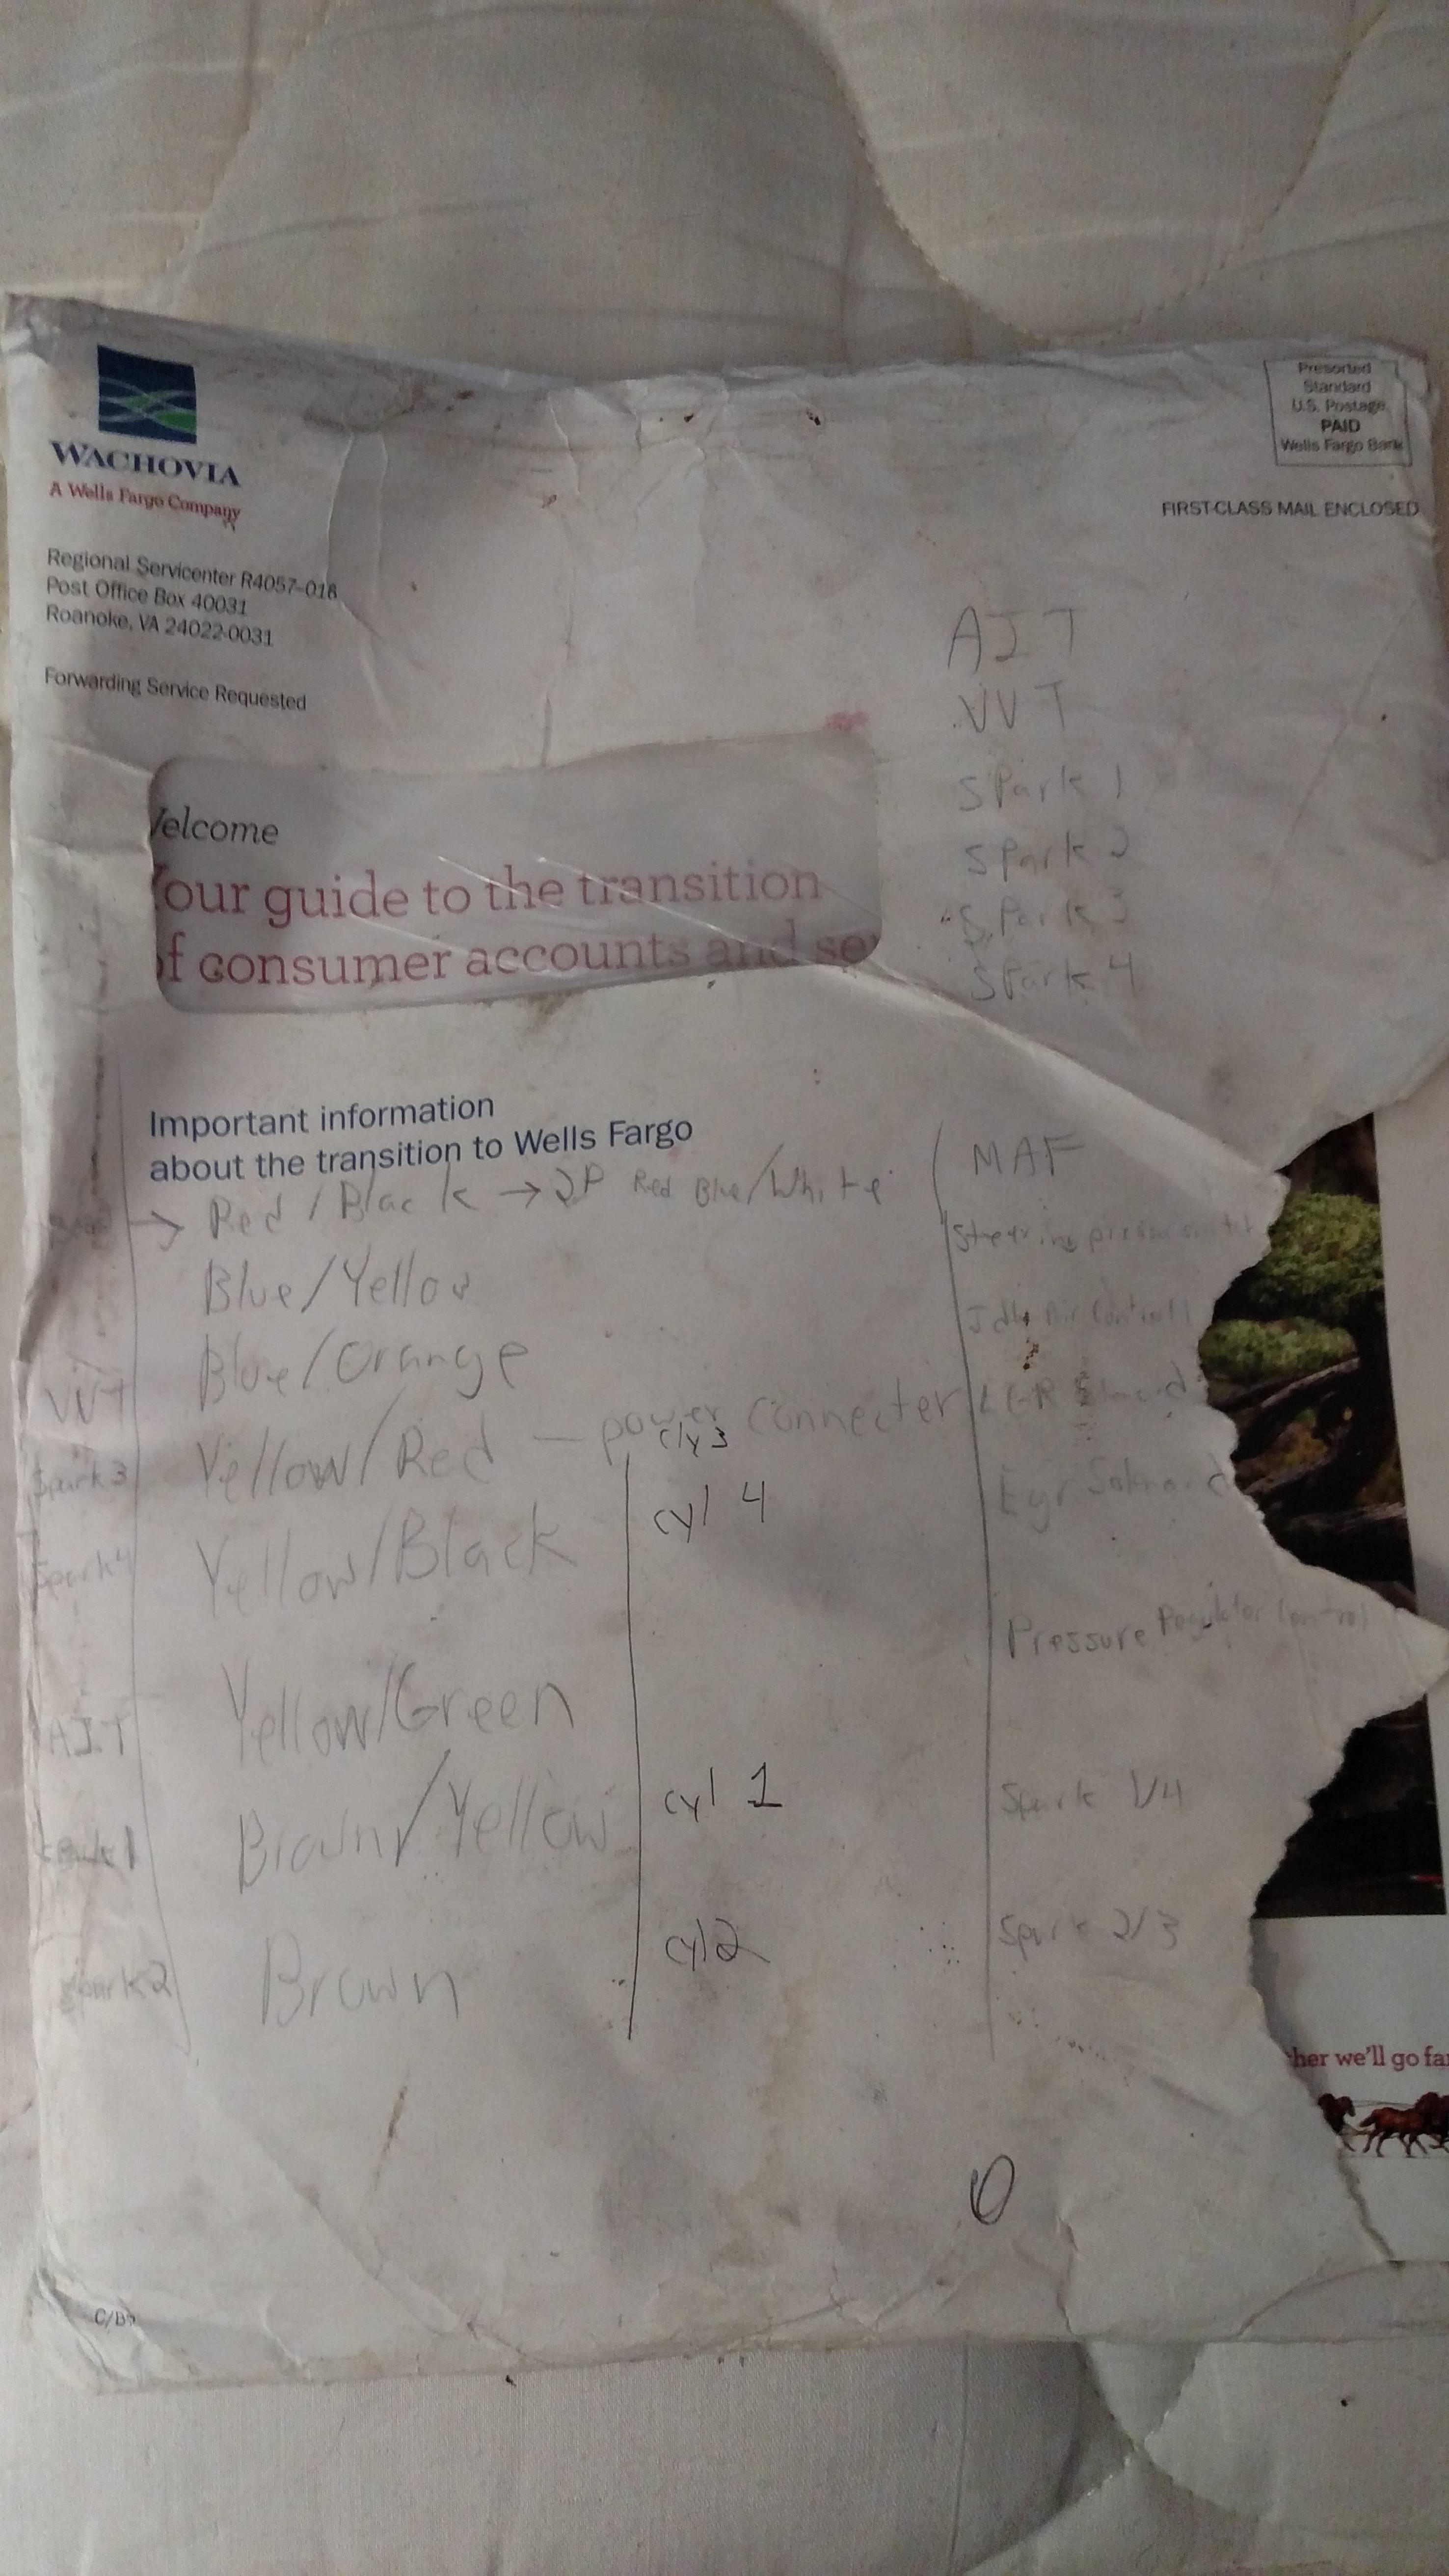 WACHOVIA
A Wells Fargo Company
Regional Servicenter R4057-018
Post Office Box 40031
Roanoke, VA 24022-0031
Forwarding Service Requested
Presorted
Standard
U.S. Postage
PAID
Wells Fargo Bank
FIRST-CLASS MAIL ENCLOSED
AIT
VVT
Spark 1
Spark 2
Spark 3
Spark 4
elcome
our guide to the transition
f consumer accounts and se
Important information
about the transition to Wells Fargo
→ Red / Black → 2P Red Blue/White
MAF
Steering
Blue/Yellow
Idle Air Control
VVT
Blue/Orange
Spark3
Yellow/Red — power connecter
cly 3
Spark4
Yellow/Black
cyl 4
Egr
Pressure Regulator Control
AIT
Yellow/Green
Brown/Yellow
cyl 1
Spark 1/4
Spark2
Brown
cyl2
Spark 2/3
her we'll go fa
0
C/B